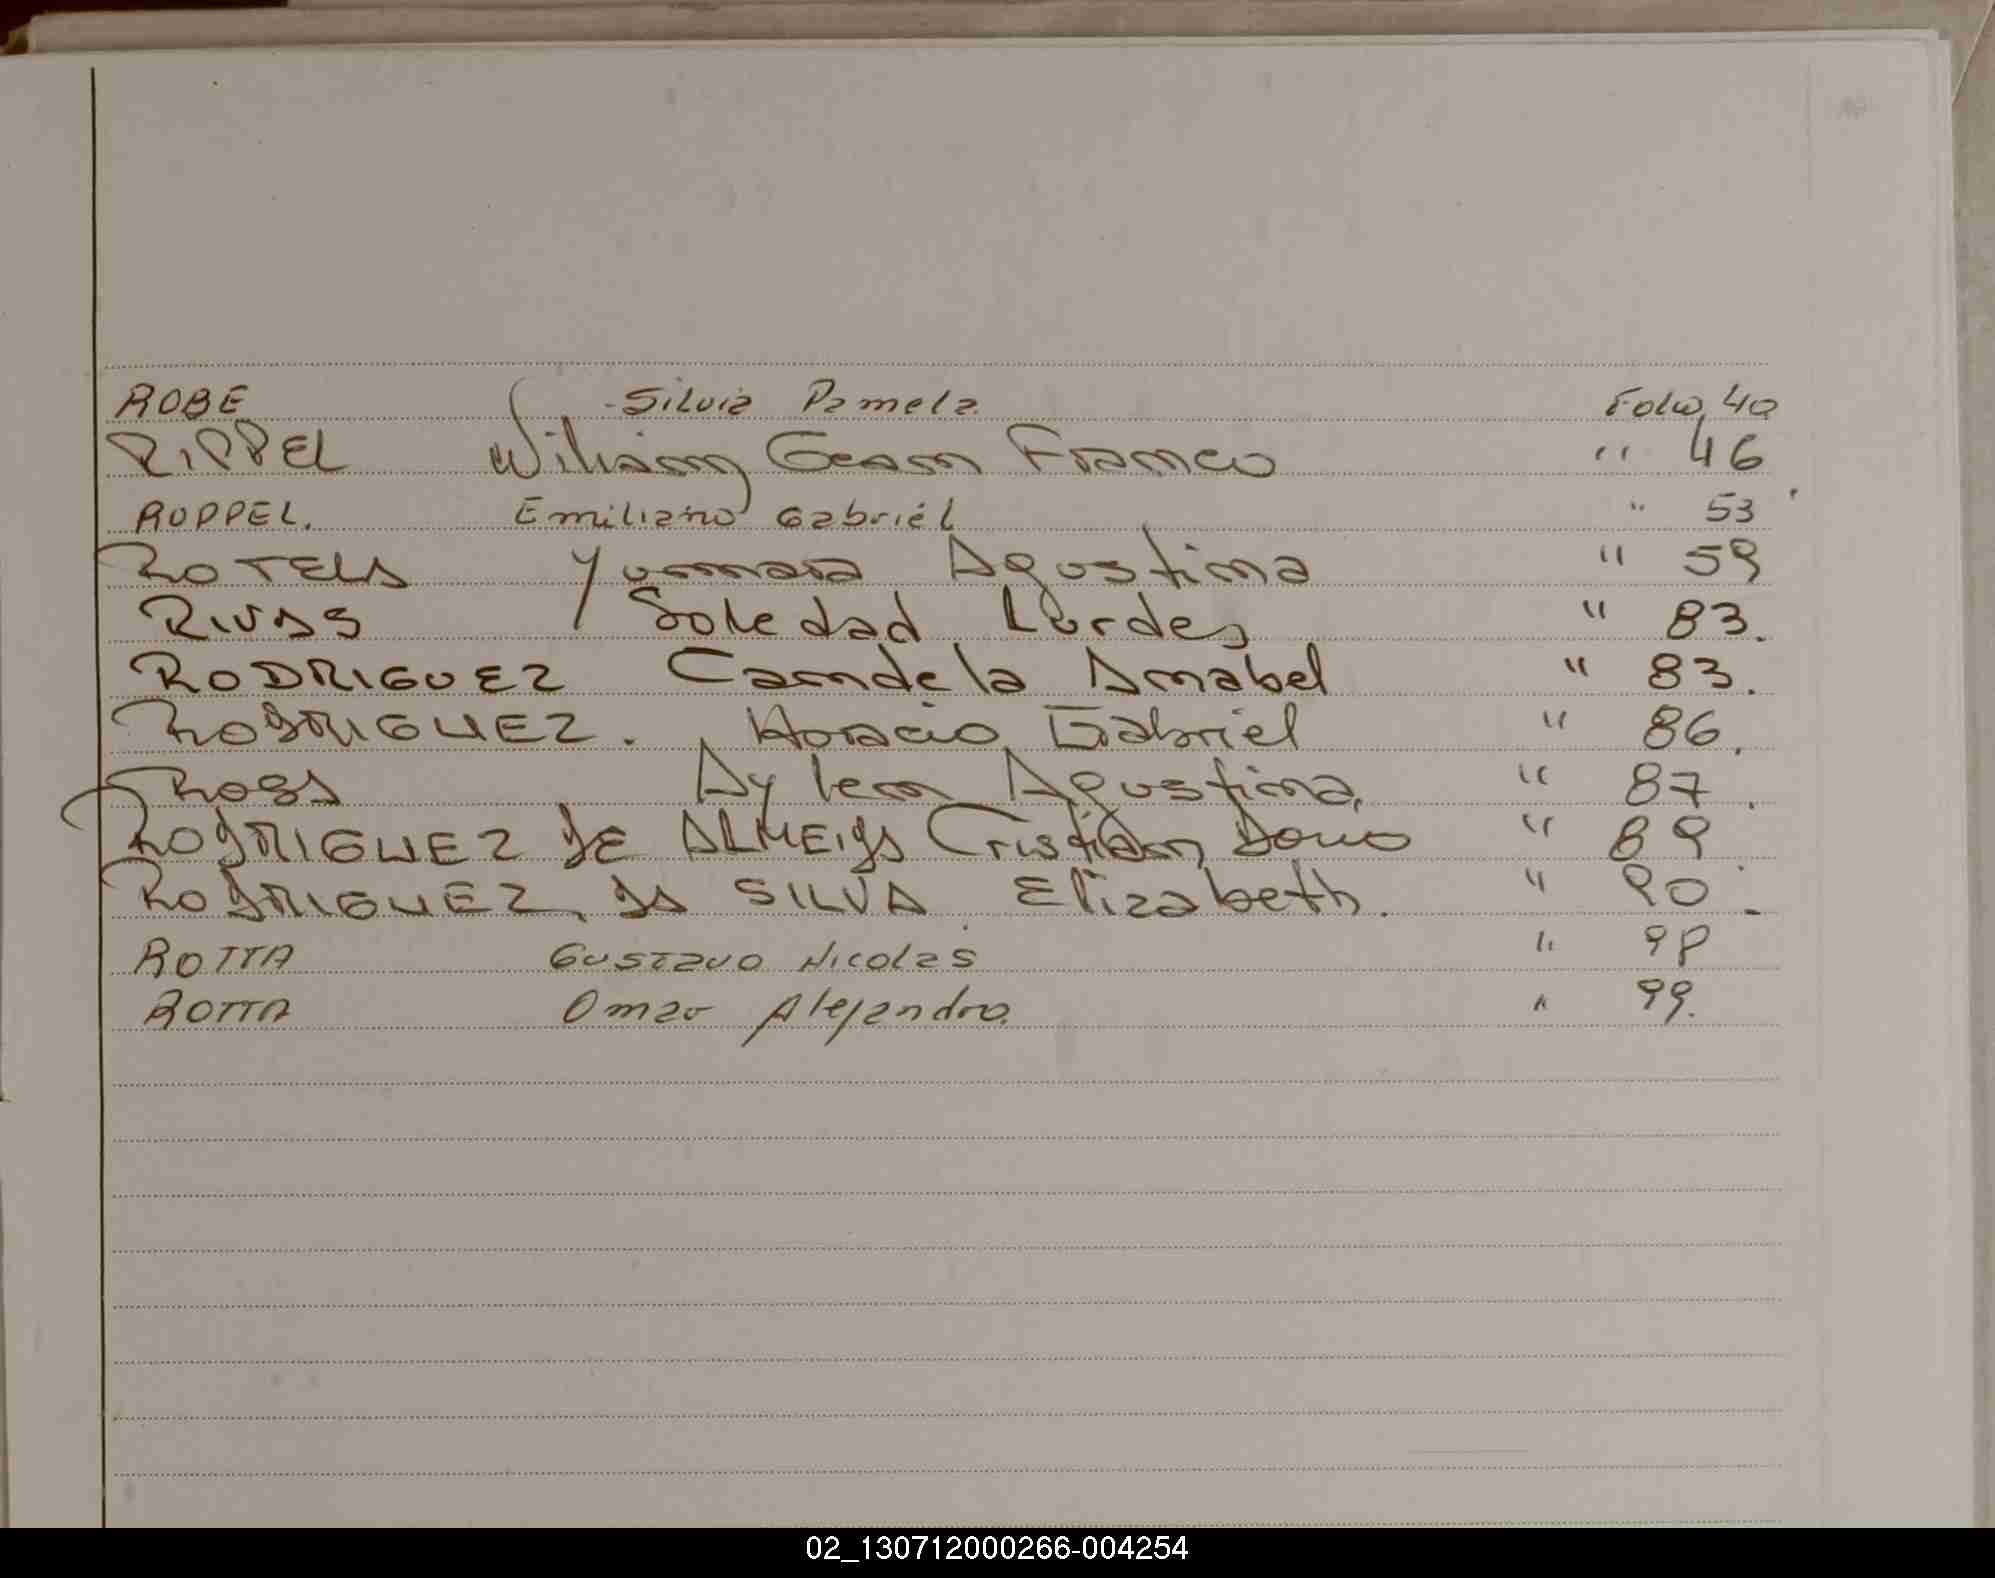 ROBE Silvia Pamela Folio 40
RIPPEL Wiliam Gean Franco " 46
RUPPEL. Emiliano Gabriel " 53
ROTELA Yumara Agustina " 59
RIVAS Soledad Lurdes " 83.
RODRIGUEZ Candela Anabel " 83.
RODRIGUEZ. Horacio Gabriel " 86.
Aylen Agustina. " 87.
RODRIGUEZ DE ALMEIDA Cristian " 89.
RODRIGUEZ DA SILVA Elizabeth. " 90.
ROTTA Gustavo Nicolas " 98
ROTTA Omar Alejandro. " 99.
02_130712000266-004254